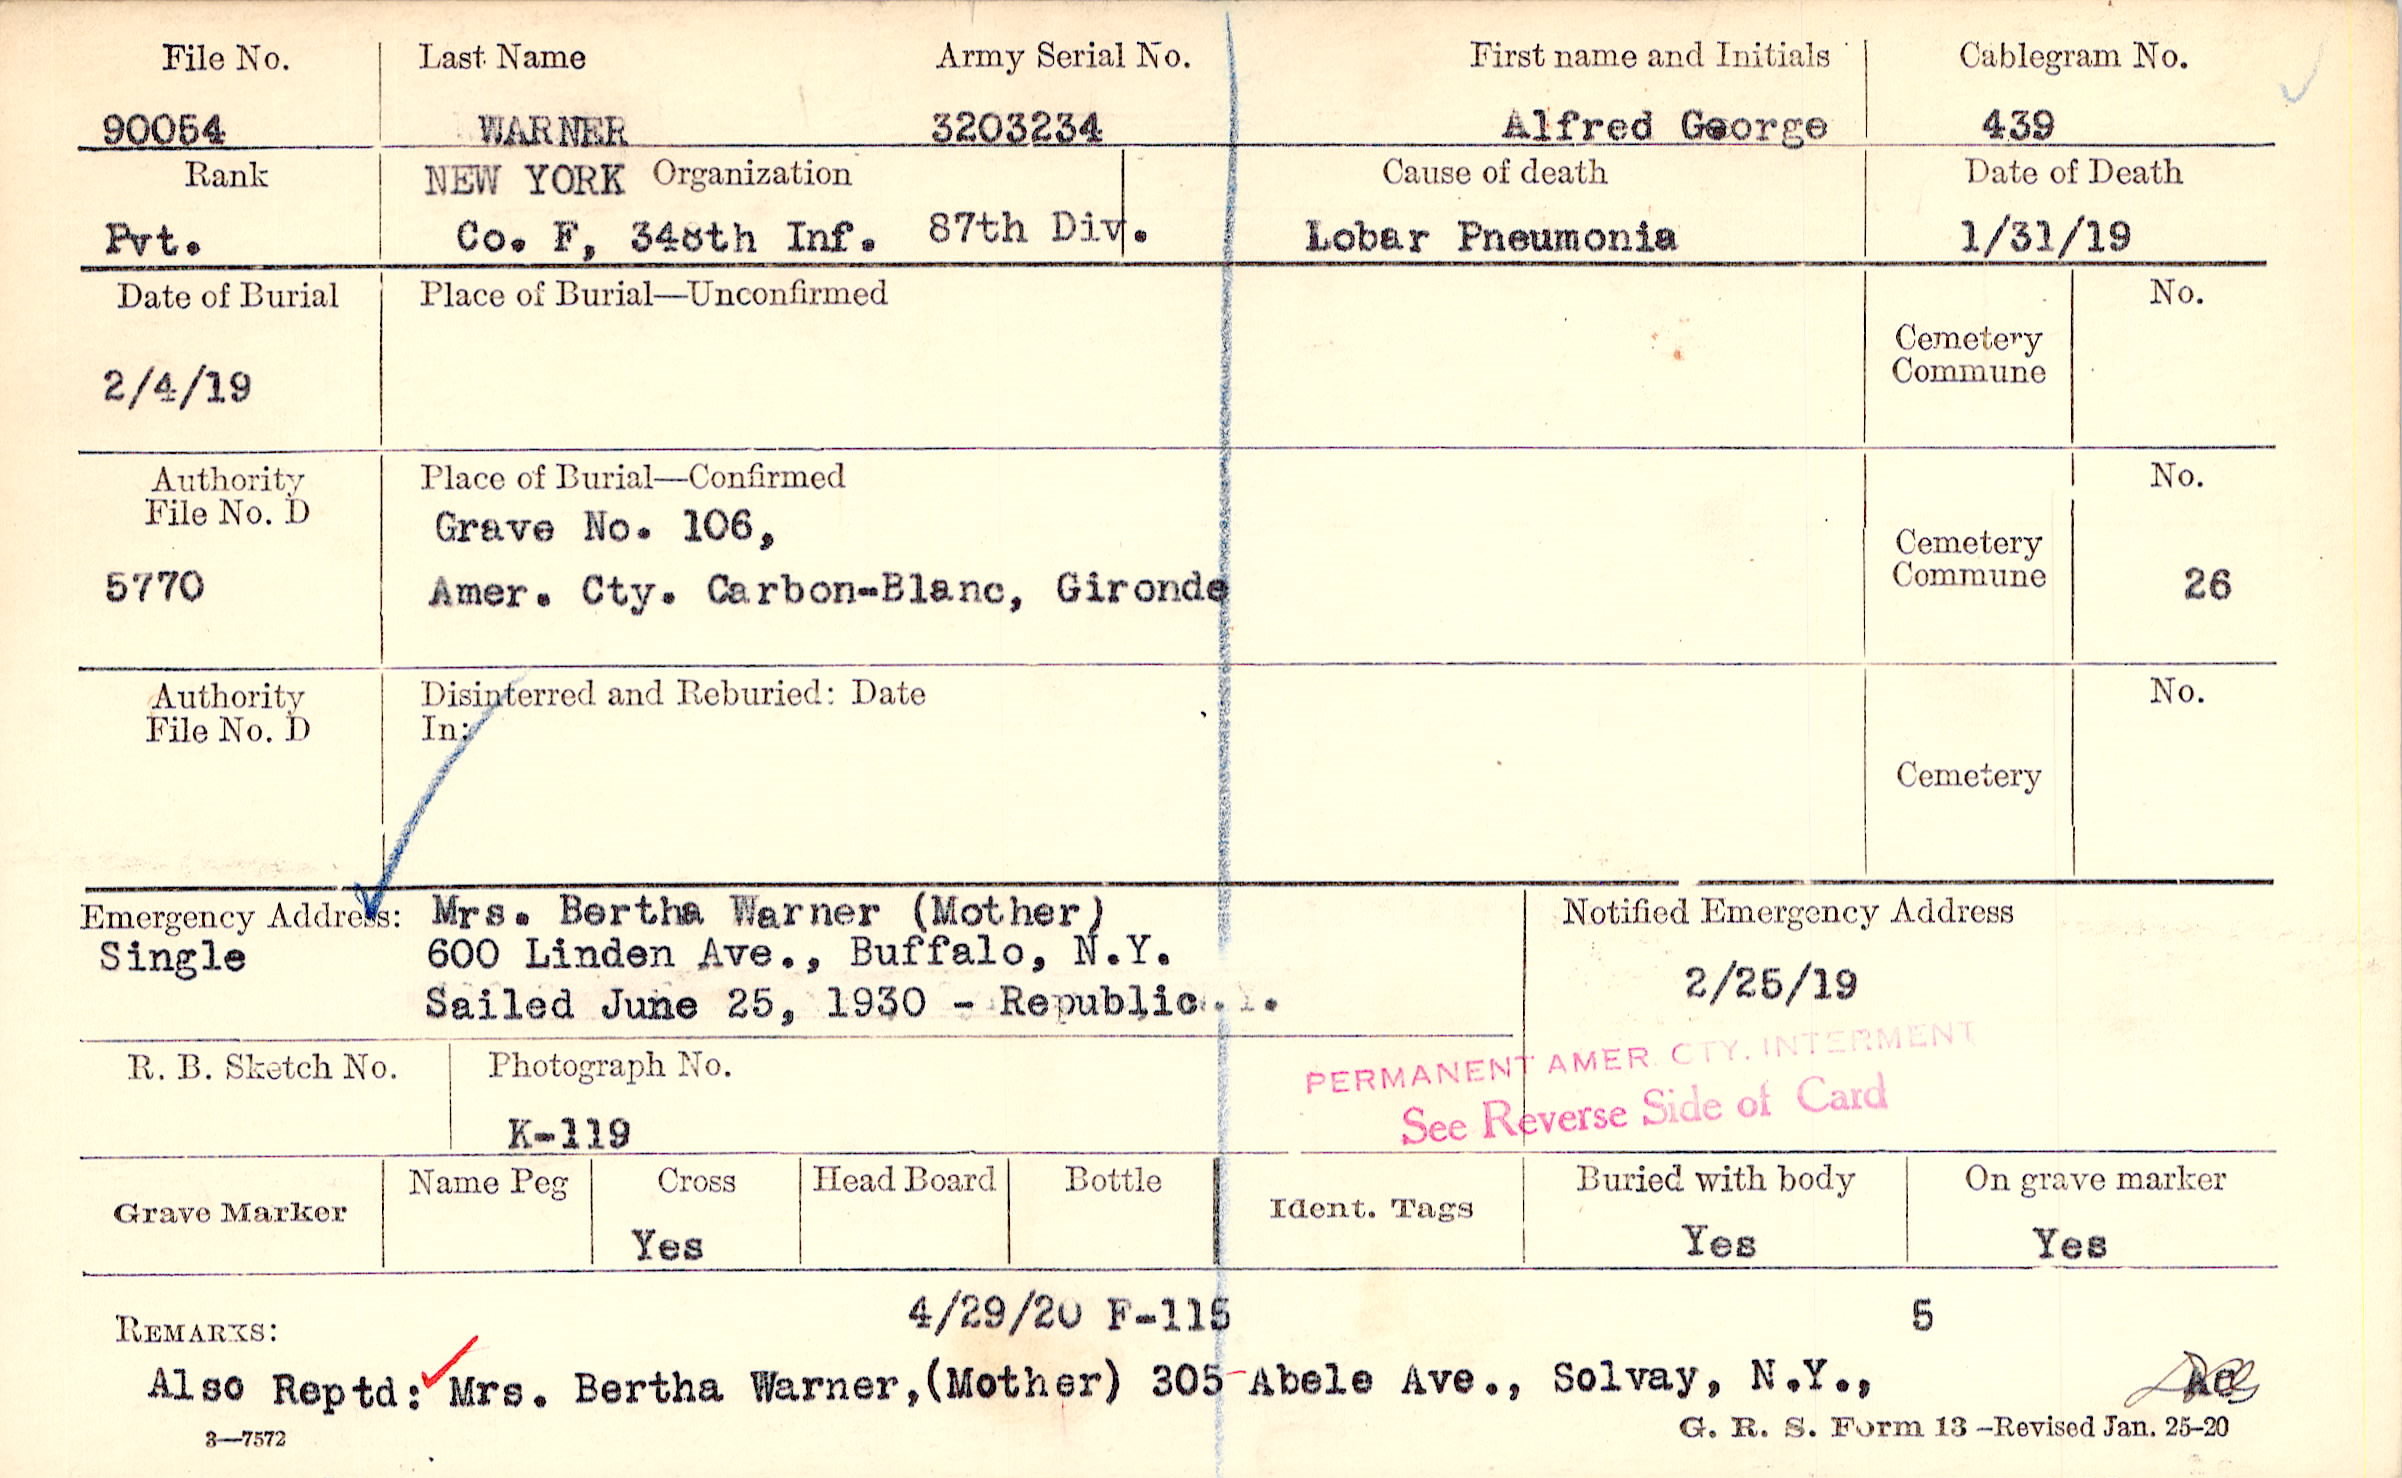 File No. Last Name Army Serial No. First name and Initials Cablegram No.
90054 WARNER 3203234 Alfred George 439
Rank NEW YORK Organization Cause of death Date of Death
Pvt. Co. F, 348th Inf. 87th Div. Lobar Pneumonia 1/31/19
Date of Burial Place of Burial—Unconfirmed No.
Cemetery
Commune
2/4/19
Authority Place of Burial—Confirmed No.
File No. D
Grave No. 106,
Cemetery
5770 Amer. Cty. Carbon-Blanc, Gironde Commune 26
Authority Disinterred and Reburied: Date No.
File No. D In:
Cemetery
Emergency Address: Mrs. Bertha Warner (Mother) Notified Emergency Address
Single 600 Linden Ave., Buffalo, N.Y.
2/25/19
Sailed June 25, 1930 - Republic.
R. B. Sketch No. Photograph No. PERMANENT AMER. CTY. INTERMENT
See Reverse Side of Card
K-119
Grave Marker Name Peg Cross Head Board Bottle Ident. Tags Buried with body On grave marker
Yes Yes Yes
REMARKS: 4/29/20 F-115 5
Also Reptd: Mrs. Bertha Warner,(Mother) 305 Abele Ave., Solvay, N.Y.,
3—7572 G. R. S. Form 13 –Revised Jan. 25-20